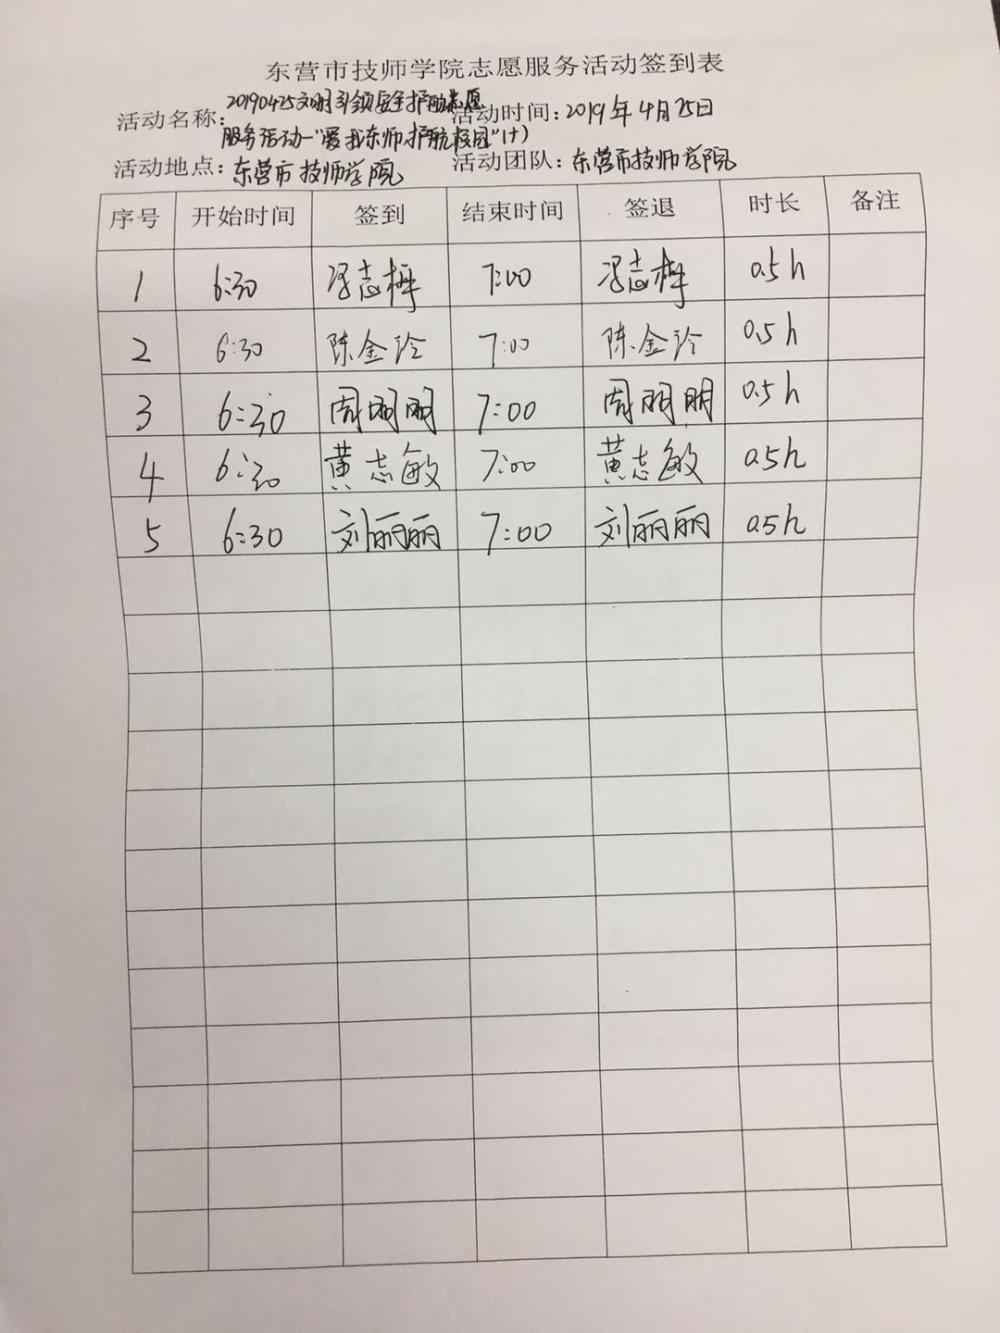 东营市技师学院志愿服务活动签到表
活动名称: 20190425文明引领安全护航志愿 活动时间: 2019年4月25日
服务活动—"爱我东师护航校园"(十)
活动地点: 东营市技师学院 活动团队: 东营市技师学院
序号 开始时间 签到 结束时间 签退 时长 备注
1 6:30 冯志梅 7:00 冯志梅 0.5h
2 6:30 陈金玲 7:00 陈金玲 0.5h
3 6:30 周明明 7:00 周明明 0.5h
4 6:30 黄志敏 7:00 黄志敏 0.5h
5 6:30 刘丽丽 7:00 刘丽丽 0.5h